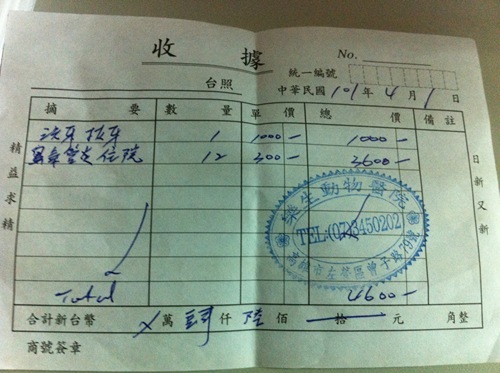 收 據 No.
統一編號
台照 中華民國 101 年 4 月 1 日
摘 要 數 量 單 價 總 價 備註
洗牙 拔牙 1 1000- 1000-
住院 12 300- 3600-
精益求精
日新又新
樂生動物醫院
TEL:(07)3450202
高雄市左營區曾子路79號
Total 4600-
合計新台幣 X 萬 肆 仟 陸 佰 拾 元 角整
商號簽章